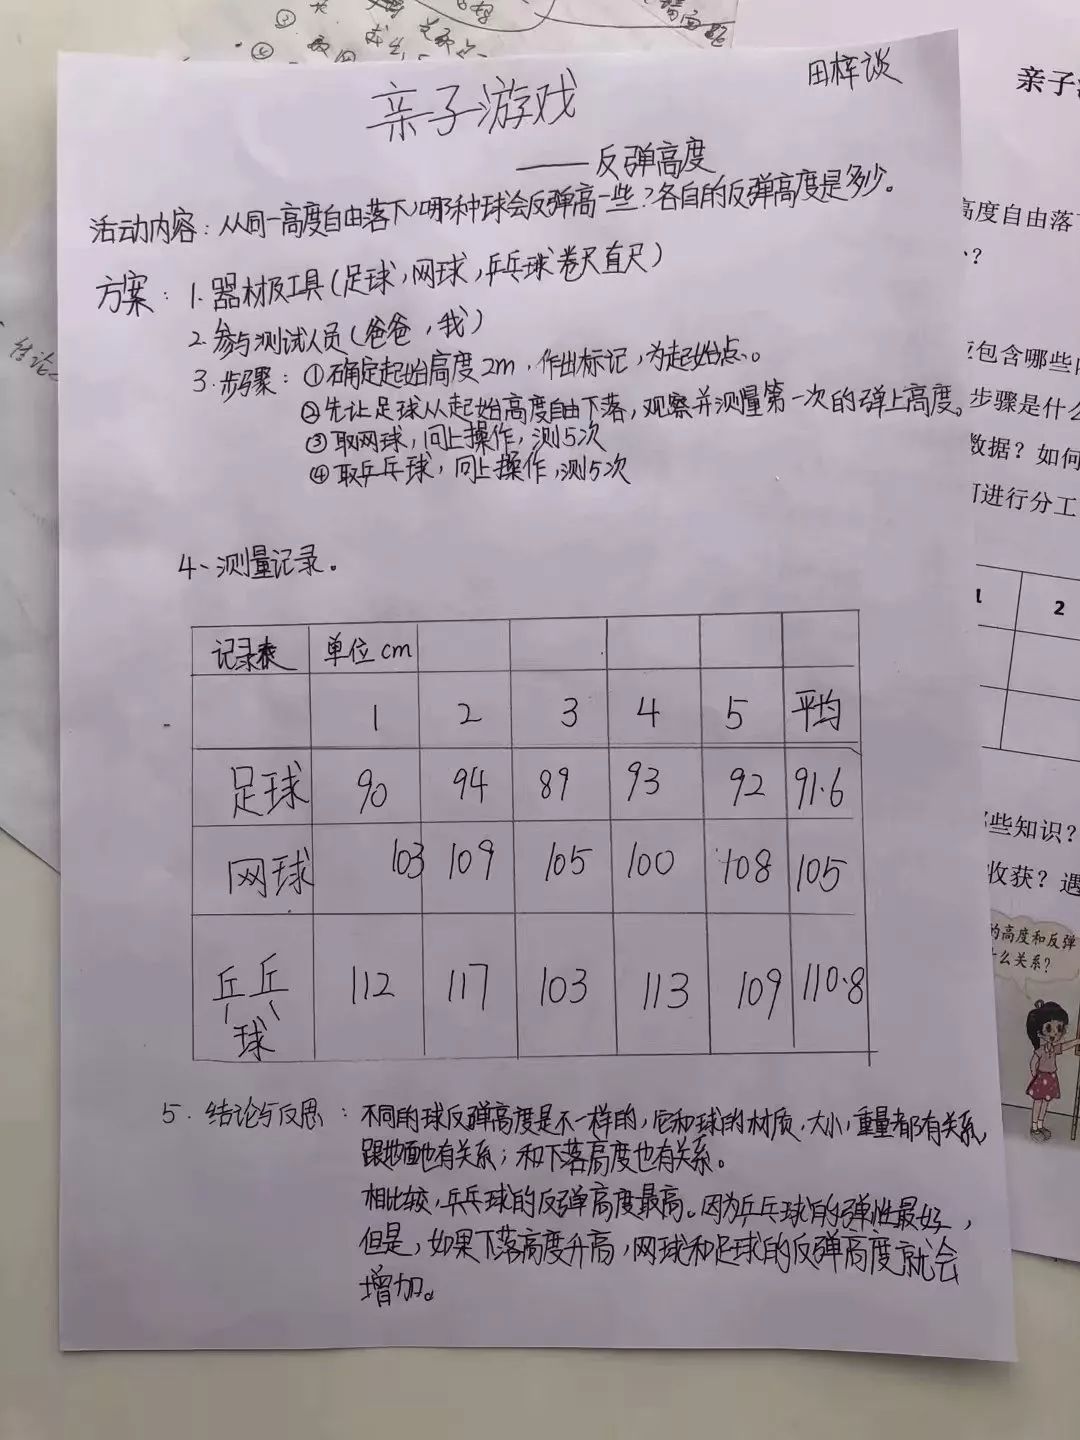 田梓谈
亲子游戏
——反弹高度
活动内容：从同一高度自由落下，哪种球会反弹高一些？各自的反弹高度是多少。
方案：1.器材及工具(足球,网球,乒乓球卷尺直尺)
2.参与测试人员(爸爸,我)
3.步骤：①确定起始高度2m,作出标记,为起始点。
②先让足球从起始高度自由下落,观察并测量第一次的弹上高度。
③取网球,同上操作,测5次
④取乒乓球,同上操作,测5次
4、测量记录。
记录表 单位cm
1 2 3 4 5 平均
足球 90 94 89 93 92 91.6
网球 103 109 105 100 108 105
乒乓球 112 117 103 113 109 110.8
5.结论与反思：不同的球反弹高度是不一样的,它和球的材质,大小,重量都有关系,
跟地面也有关系；和下落高度也有关系。
相比较,乒乓球的反弹高度最高。因为乒乓球的弹性最好,
但是,如果下落高度升高,网球和足球的反弹高度就会
增加。
亲子
高度自由落
？
包含哪些
步骤是什么
数据？如何
进行分工
1 2
些知识？
收获？遇
的高度和反弹
什么关系？
结论